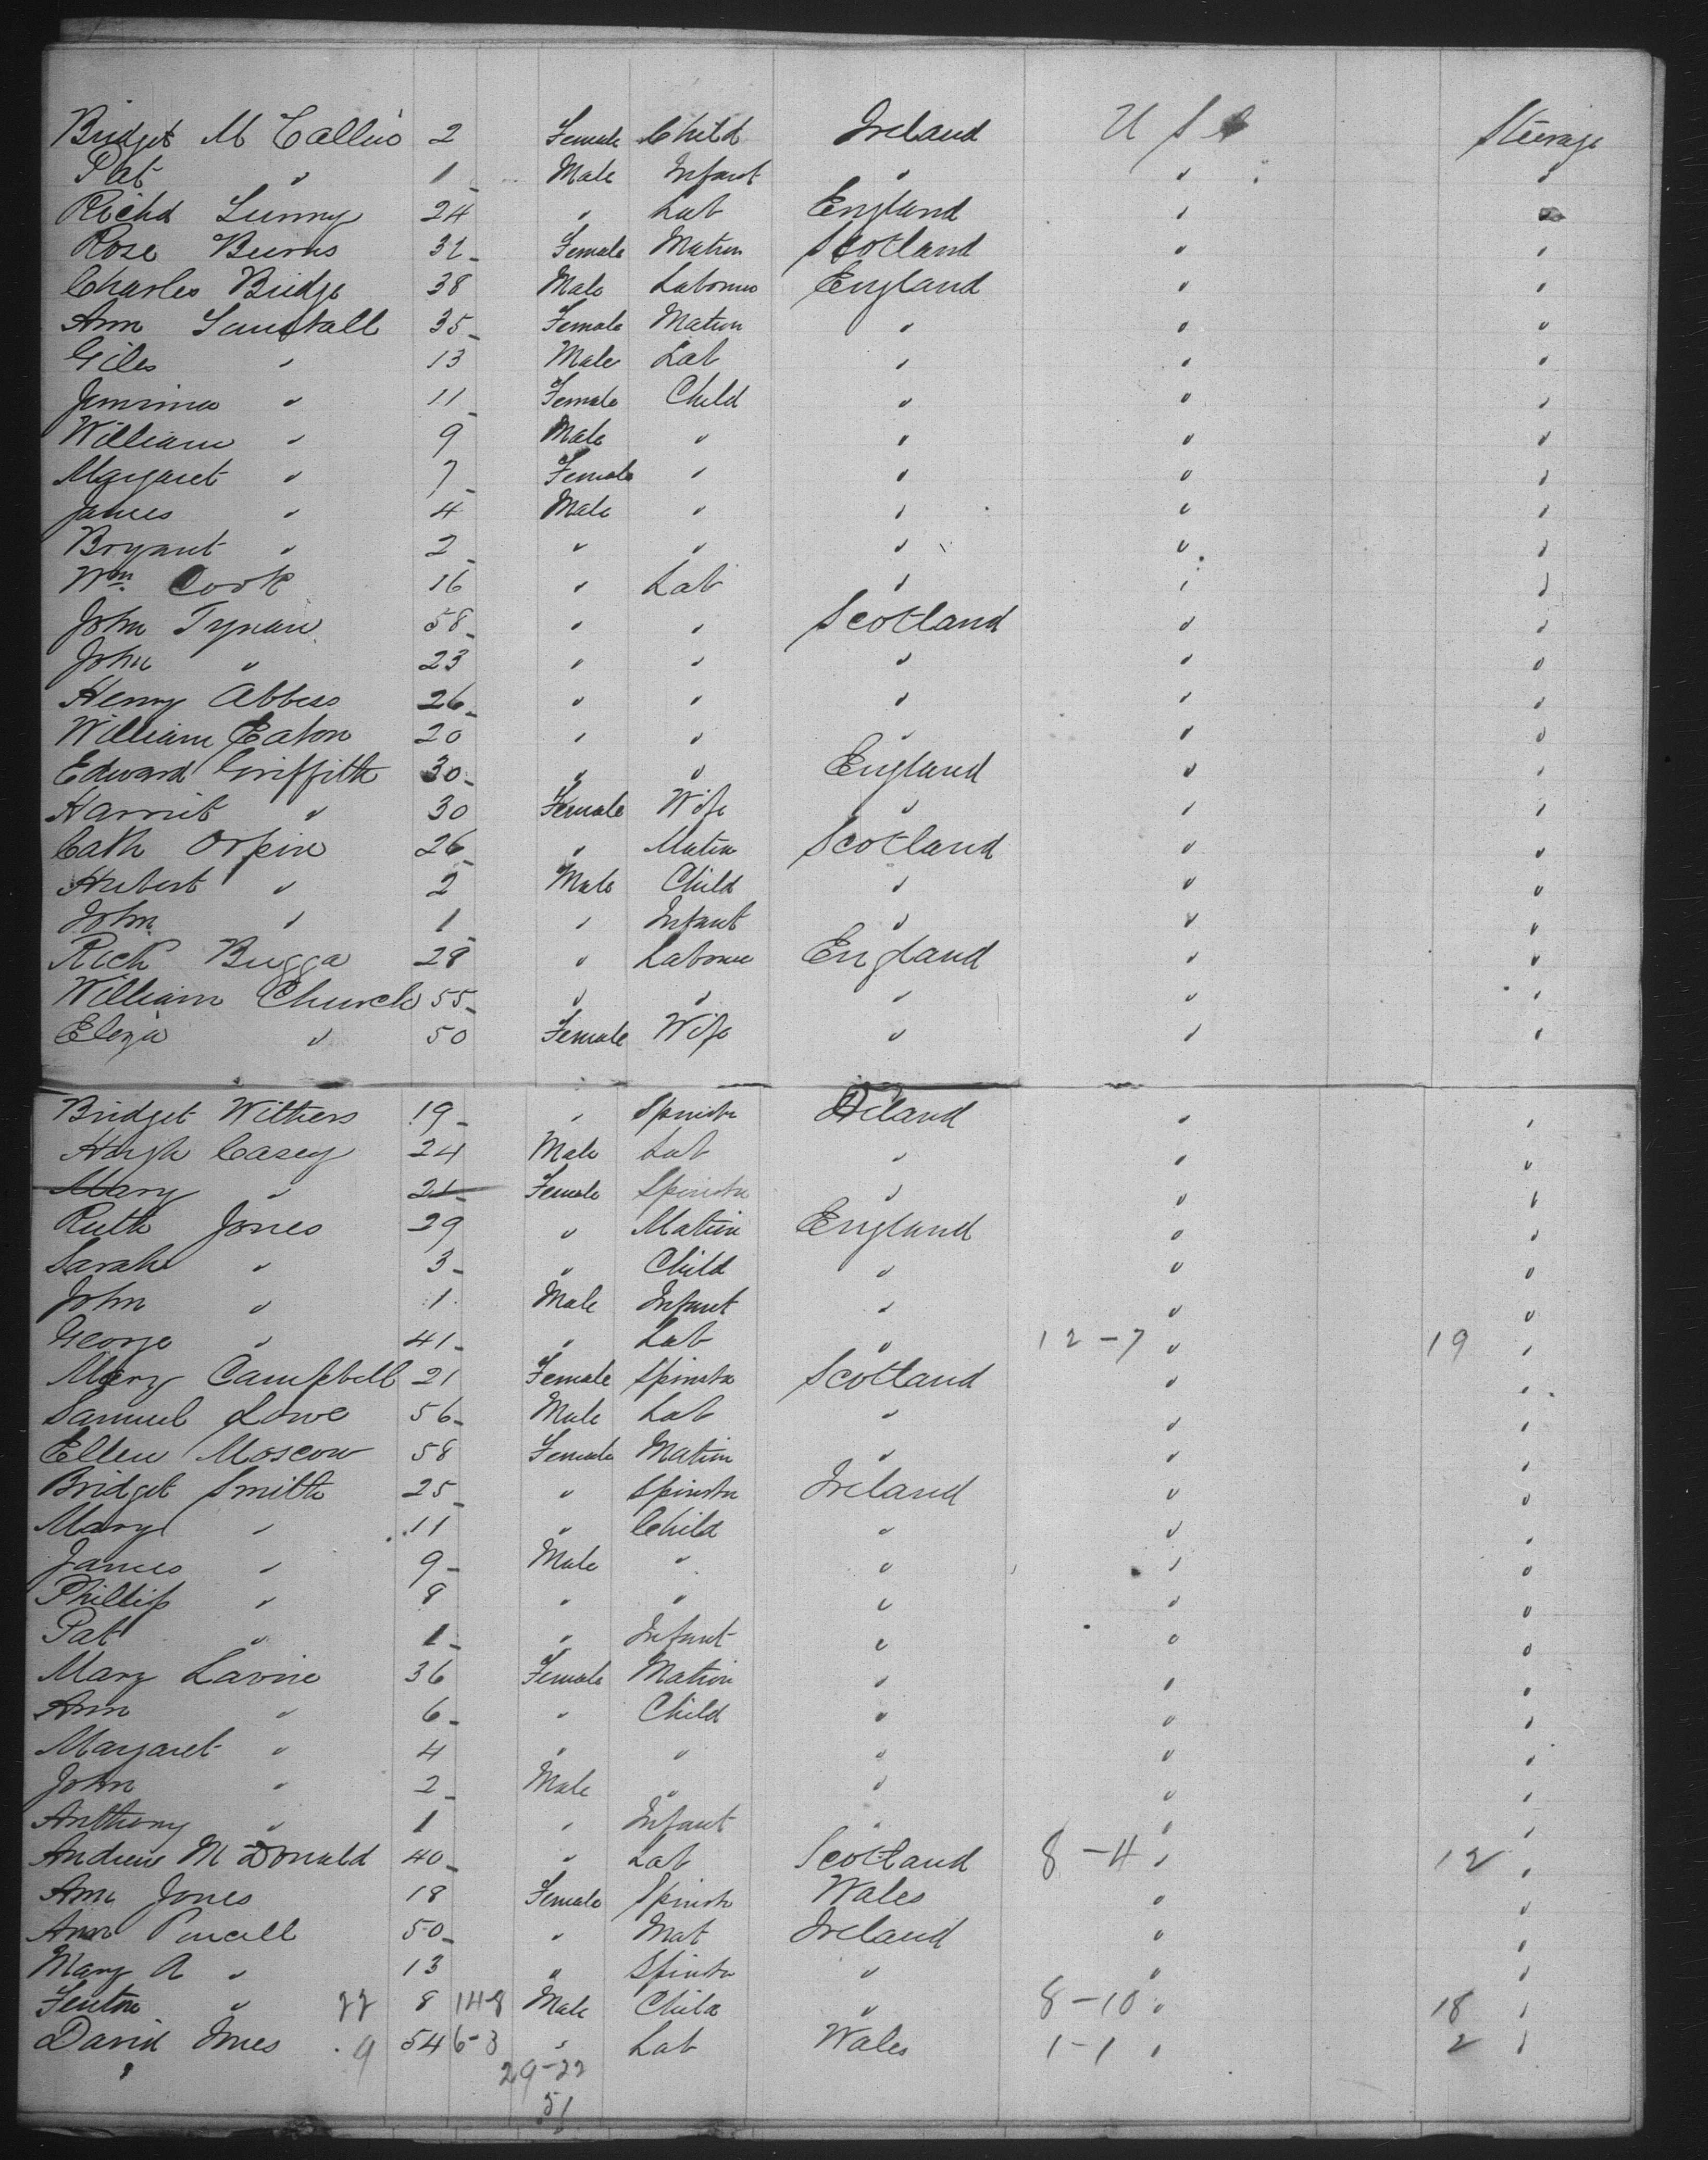 Bridget Mc Callus 2 Female Child Ireland U S A Steerage
Pat " 1 Male Infant " " "
Richd Lunny 24 " Lab England " "
Rose Burns 32 Female Matron Scotland " "
Charles Bridge 38 Male Labourer England " "
Ann 35 Female Matron " " "
Giles " 13 Male Lab " " "
Jemima " 11 Female Child " " "
William " 9 Male " " " "
Margaret " 7 Female " " " "
James " 4 Male " " " "
Bryant " 2 " " " " "
Wm Cook 16 " Lab " " "
John Tynan 58 " " Scotland " "
John " 23 " " " " "
Henry Abbess 26 " " " " "
William Eaton 20 " " " " "
Edward Griffith 30 " " England " "
Harriet " 30 Female Wife " " "
Cath Orpin 26 " Matron Scotland " "
Hubert " 2 Male Child " " "
John " 1 " Infant " " "
Rich Bugga 28 " Labourer England " "
William Church 55 " " " " "
Eliza " 50 Female Wife " " "
Bridget Withers 19 " Spinster Ireland " "
Hugh Casey 24 Male Lab " " "
Mary " 21 Female Spinster " " "
Ruth Jones 29 " Matron England " "
Sarah " 3 " Child " " "
John " 1 Male Infant " " "
George " 41 " Lab " 12-7 " 19 "
Mary Campbell 21 Female Spinster Scotland " "
Samuel Lowe 56 Male Lab " " "
Ellen Moscow 58 Female Matron " " "
Bridget Smith 25 " Spinster Ireland " "
Mary " 11 " Child " " "
James " 9 Male " " " "
Phillip " 8 " " " " "
Pat " 1 " Infant " " "
Mary Lavin 36 Female Matron " " "
Ann " 6 " Child " " "
Margaret " 4 " " " " "
John " 2 Male " " " "
Anthony " 1 " Infant " " "
Andrew Mc Donald 40 " Lab Scotland 8-4 " 12 "
Ann Jones 18 Female Spinster Wales " "
Ann Purcell 50 " Mat Ireland " "
Mary A " 13 " Spinster " " "
Fenton " 22 8 14-8 Male Child " 8-10 " 18 "
David Innes 9 54 6-3 " Lab Wales 1-1 " 2 "
29-22
51